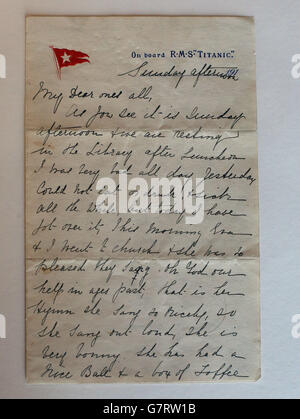 On board R·M·S·"TITANIC."
Sunday afternoon 191
My Dear ones all,
As you see it is Sunday
afternoon & we are resting
in the Library after Luncheon
I was very bad all day Yesterday
Could not eat or drink & sick
all the while but today I have
got over it, This morning Eva
& I went to church & she was so
pleased they sang Oh God our
help in ages past, that is her
Hymn she sang so nicely, so
she sang out loud she is
very bonny she has had a
nice Ball & a box of Toffee
alamy
G7RW1B